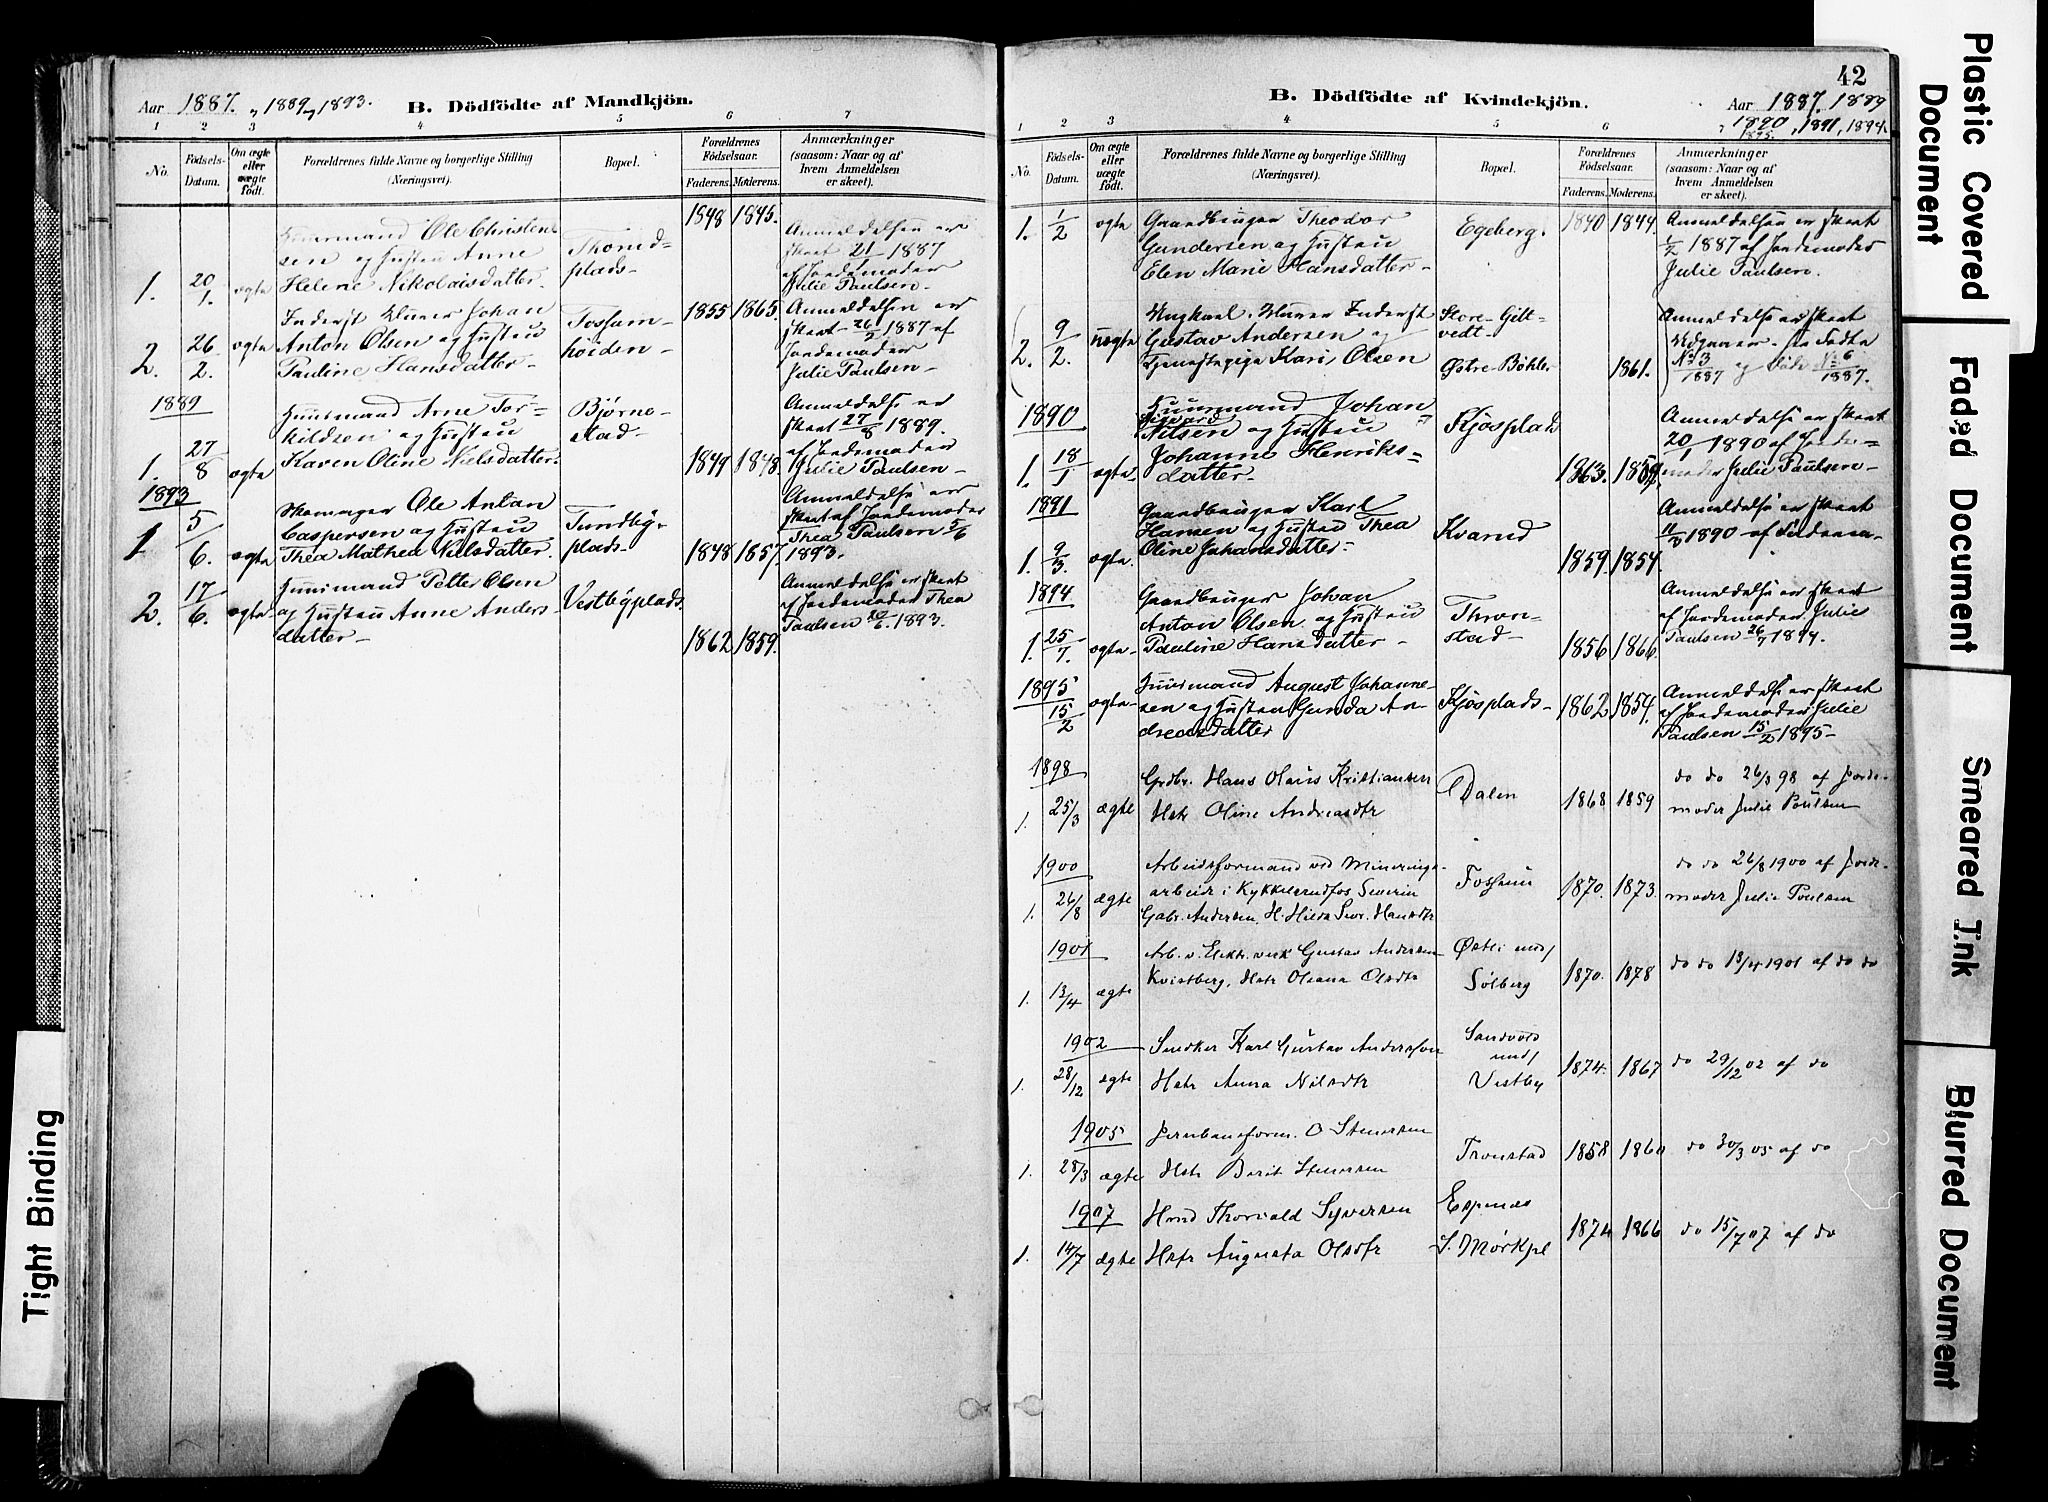 Aar 1887. „ 1889 „ 1893.
B. Dödfödte af Mandkjön.
1 2 3 4 5 6 7
No.
Födsels-
Datum.
Om ægte
eller
uægte
födt.
Forældrenes fulde Navne og borgerlige Stilling
(Næringsvei).
Bopæl.
Forældrenes
Födselsaar.
Faderens. Moderens.
Anmærkninger
(saasom: Naar og af
hvem Anmeldelsen
er skeet).
1. 20/1. ægte
Huusmand Ole Christen
sen og Hustru Anne
Helene Nikolaisdatter.
plads-
1848 1845.
Anmeldelsen er
skeet 21/1 1887
af Jordemoder
Julie Paulsen-
2. 26/2. ægte
Inderst Johan
Anton Olsen og Hustru
Pauline Hansdatter-
Fossum-
höiden-
1855 1865.
Anmeldelsen er
skeet 26/2 1887 af
Jordemoder
Julie Paulsen-
1889
1. 27/8 ægte
Huusmand Arne Tor-
kildsen og Hustru
Karen Oline Nielsdatter.
Bjørne-
stad-
1849 1848.
Anmeldelse er
skeet 27/8 1889.
af Jordemoder
Julie Paulsen-
1893
1 5/6. ægte
Skomager Ole Anton
Caspersen og Hustru
Thea Mathea Nielsdatter.
Tundby-
plads-
1848 1857.
Anmeldelse er
skeet af Jordemoder
Thea Paulsen 5/6
1893.
2. 17/6. ægte-
Huusmand Petter Olsen
og Hustru Anne Anders
datter-
Vestbyplads.
1862 1859.
Anmeldelse er skeet
af Jordemoder Thea
Paulsen 20/6. 1893.
42
B. Dödfödte af Kvindekjön.
Aar 1887. 1889
„ 1890, 1891, 1894.
1895.
1 2 3 4 5 6
No.
Födsels-
Datum.
Om ægte
eller
uægte
födt.
Forældrenes fulde Navne og borgerlige Stilling
(Næringsvei).
Bopæl.
Forældrenes
Födselsaar.
Faderens. Moderens.
Anmærkninger
(saasom: Naar og af
hvem Anmeldelsen
er skeet).
1. 1/2 ægte
Gaardbruger Theodor
Gundersen og Hustru
Elen Marie Hansdatter-
Egeberg.
1840 1844.
Anmeldelsen er skeet
1/2 1887 af Jordemoder
Julie Paulsen.
2. 9/2. uægte
Ungkarl. Inderst
Gustav Andersen og
Tjenestepige Kari Olsen
Store-Gilt-
vedt-
Østre-Böhler
1861.
Anmeldelse er skeet
No 3/1887 og Døde No 6/1887.
1890
1. 18/1 ægte-
Huusmand Johan
Nilsen og Hustru
Johanne Henriks-
datter-
Kjösplads
1863. 1859.
Anmeldelse er skeet
20/1 1890 af Jorde-
moder Julie Paulsen-
1891
1. 9/3. ægte.
Gaardbruger Karl
Hansen og Hustru Thea
Oline Johansdatter-
1859. 1854.
Anmeldelse er skeet
1894
1. 25/7. ægte-
Gaardbruger Johan
Anton Olsen og Hustru
Pauline Hansdatter-
Thron-
stad-
1856 1866.
Anmeldelse er skeet
af Jordemoder Julie
Paulsen 26/7 1894.
1895
15/2 ægte-
Huusmand August Johanne-
sen og Hustru Gunda An-
dreasdatter
Kjösplads-
1862 1854.
Anmeldelse er skeet
af Jordemoder Julie
Paulsen 15/2 1895-
1898
1. 25/3 ægte
Grdbr. Hans Olaus Kristiansen
Hstr Oline Andreasdtr
Dalen
1868 1859
do do 26/3 98 af Jorde-
moder Julie Poulsen
1900
1. 26/8 ægte
Arbeidsformand ved Minerings-
arbeide i Kykkelsrudfos Severin
Gabr. Andersen, H. Hilda Hansdtr
Fossum
1870. 1873.
do do 26/8 1900 af Jorde-
moder Julie Poulsen
1901
1. 13/4 ægte
Arb. v. Elektr. verk Gustav Andersen
Kvistberg, Hstr Oleana Olsdtr
Østli und/
Sölberg
1870. 1878
do do 13/4 1901 af do do
1902
1. 28/12 ægte
Snedker Karl Gustav Andersson
Hstr Anna Nilsdtr
Sandvold
und/
Vestby
1874. 1867
do 29/12 02 af do
1905
1. 28/3 ægte
Jernbaneform. O Stenersen
Hstr Berit Stenersen
Tronstad
1858 1860
do 30/3 05 af do
1907
1. 14/7 ægte
Hmd Thorvald Syversen
Hstr Augusta Olsdtr
Espenæs
S. Mörkpl
1874 1866
do 15/7 07 af do
Plastic Covered
Document
Faded Document
Smeared Ink
Blurred Document
Tight Binding